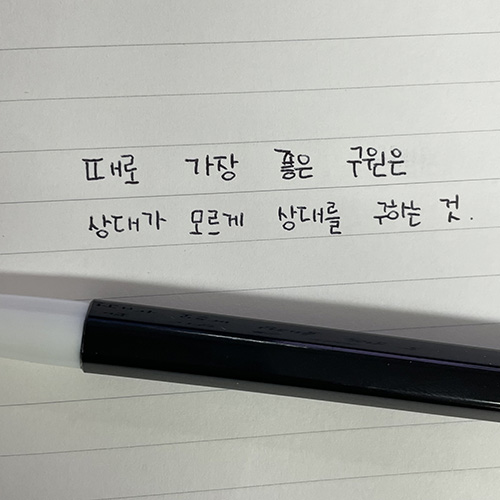 때로 가장 좋은 구원은
상대가 모르게 상대를 구하는 것.